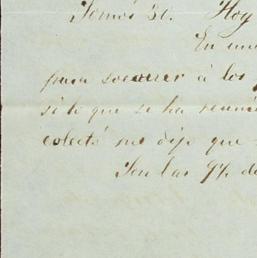 Tomás 30. Hoy
En una
para socorrer á los
si lo que se ha reuni
colectó me dijo que
Son las 9½ de